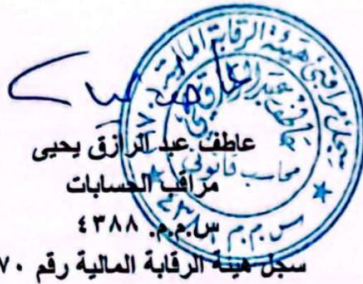 عاطف عبد الرازق يحيى
مراقب الحسابات
س.م.م. ٤٣٨٨
سجل هيئة الرقابة المالية رقم ٧٠
سجل مراقبى هيئة الرقابة المالية
عاطف عبد الرازق
محاسب قانونى
س.م.م ٤٣٨٨